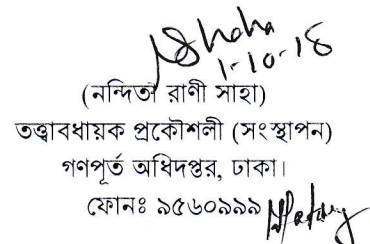 1-10-18
(নন্দিতা রাণী সাহা)
তত্ত্বাবধায়ক প্রকৌশলী (সংস্থাপন)
গণপূর্ত অধিদপ্তর, ঢাকা।
ফোনঃ ৯৫৬০৯৯৯